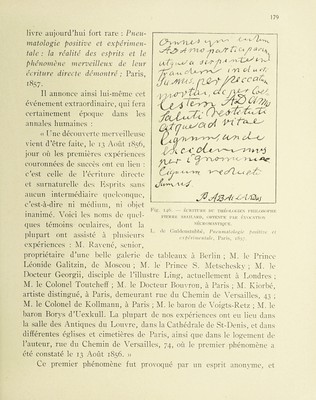 179
livre aujourd'hui fort rare : Pneu-
matologie positive et expérimen-
tale : la réalité des esprits et le
phénomène merveilleux de leur
écriture directe démontré ; Paris,
1857.
Il annonce ainsi lui-même cet
événement extraordinaire, qui fera
certainement époque dans les
annales humaines :
« Une découverte merveilleuse
vient d'être faite, le 13 Août 1856,
jour où les premières expériences
couronnées de succès ont eu lieu :
c'est celle de l'écriture directe
et surnaturelle des Esprits sans
aucun intermédiaire quelconque,
c'est-à-dire ni médium, ni objet
inanimé. Voici les noms de quel-
ques témoins oculaires, dont la
plupart ont assisté à plusieurs
expériences : M. Ravené, senior,
Omnes
a serpente in
per peccatu
lestem ADAm
saluti restituti
atque ad vitae
lignum, unde
per ignominiae
lignum reducti
sumus
P. ABAELARDUS
Fig. — ÉCRITURE DU THÉOLOGIEN PHILOSOPHE
PIERRE ABAILARD, OBTENUE PAR ÉVOCATION
NÉCROMANTIQUE.
L. de Guldenstubbé, Pneumatologie positive et
expérimentale, Paris, 1857.
propriétaire d'une belle galerie de tableaux à Berlin ; M. le Prince
Léonide Galitzin, de Moscou ; M. le Prince S. Metschesky ; M. le
Docteur Georgii, disciple de l'illustre Ling, actuellement à Londres ;
M. le Colonel Toutcheff ; M. le Docteur Bouvron, à Paris ; M. Kiorbé,
artiste distingué, à Paris, demeurant rue du Chemin de Versailles, 43 ;
M. le Colonel de Kollmann, à Paris ; M. le baron de Voigts-Retz ; M. le
baron Borys d'Uexkull. La plupart de nos expériences ont eu lieu dans
la salle des Antiques du Louvre, dans la Cathédrale de St-Denis, et dans
différentes églises et cimetières de Paris, ainsi que dans le logement de
l'auteur, rue du Chemin de Versailles, 74, où le premier phénomène a
été constaté le 13 Août 1856. »
Ce premier phénomène fut provoqué par un esprit anonyme, et